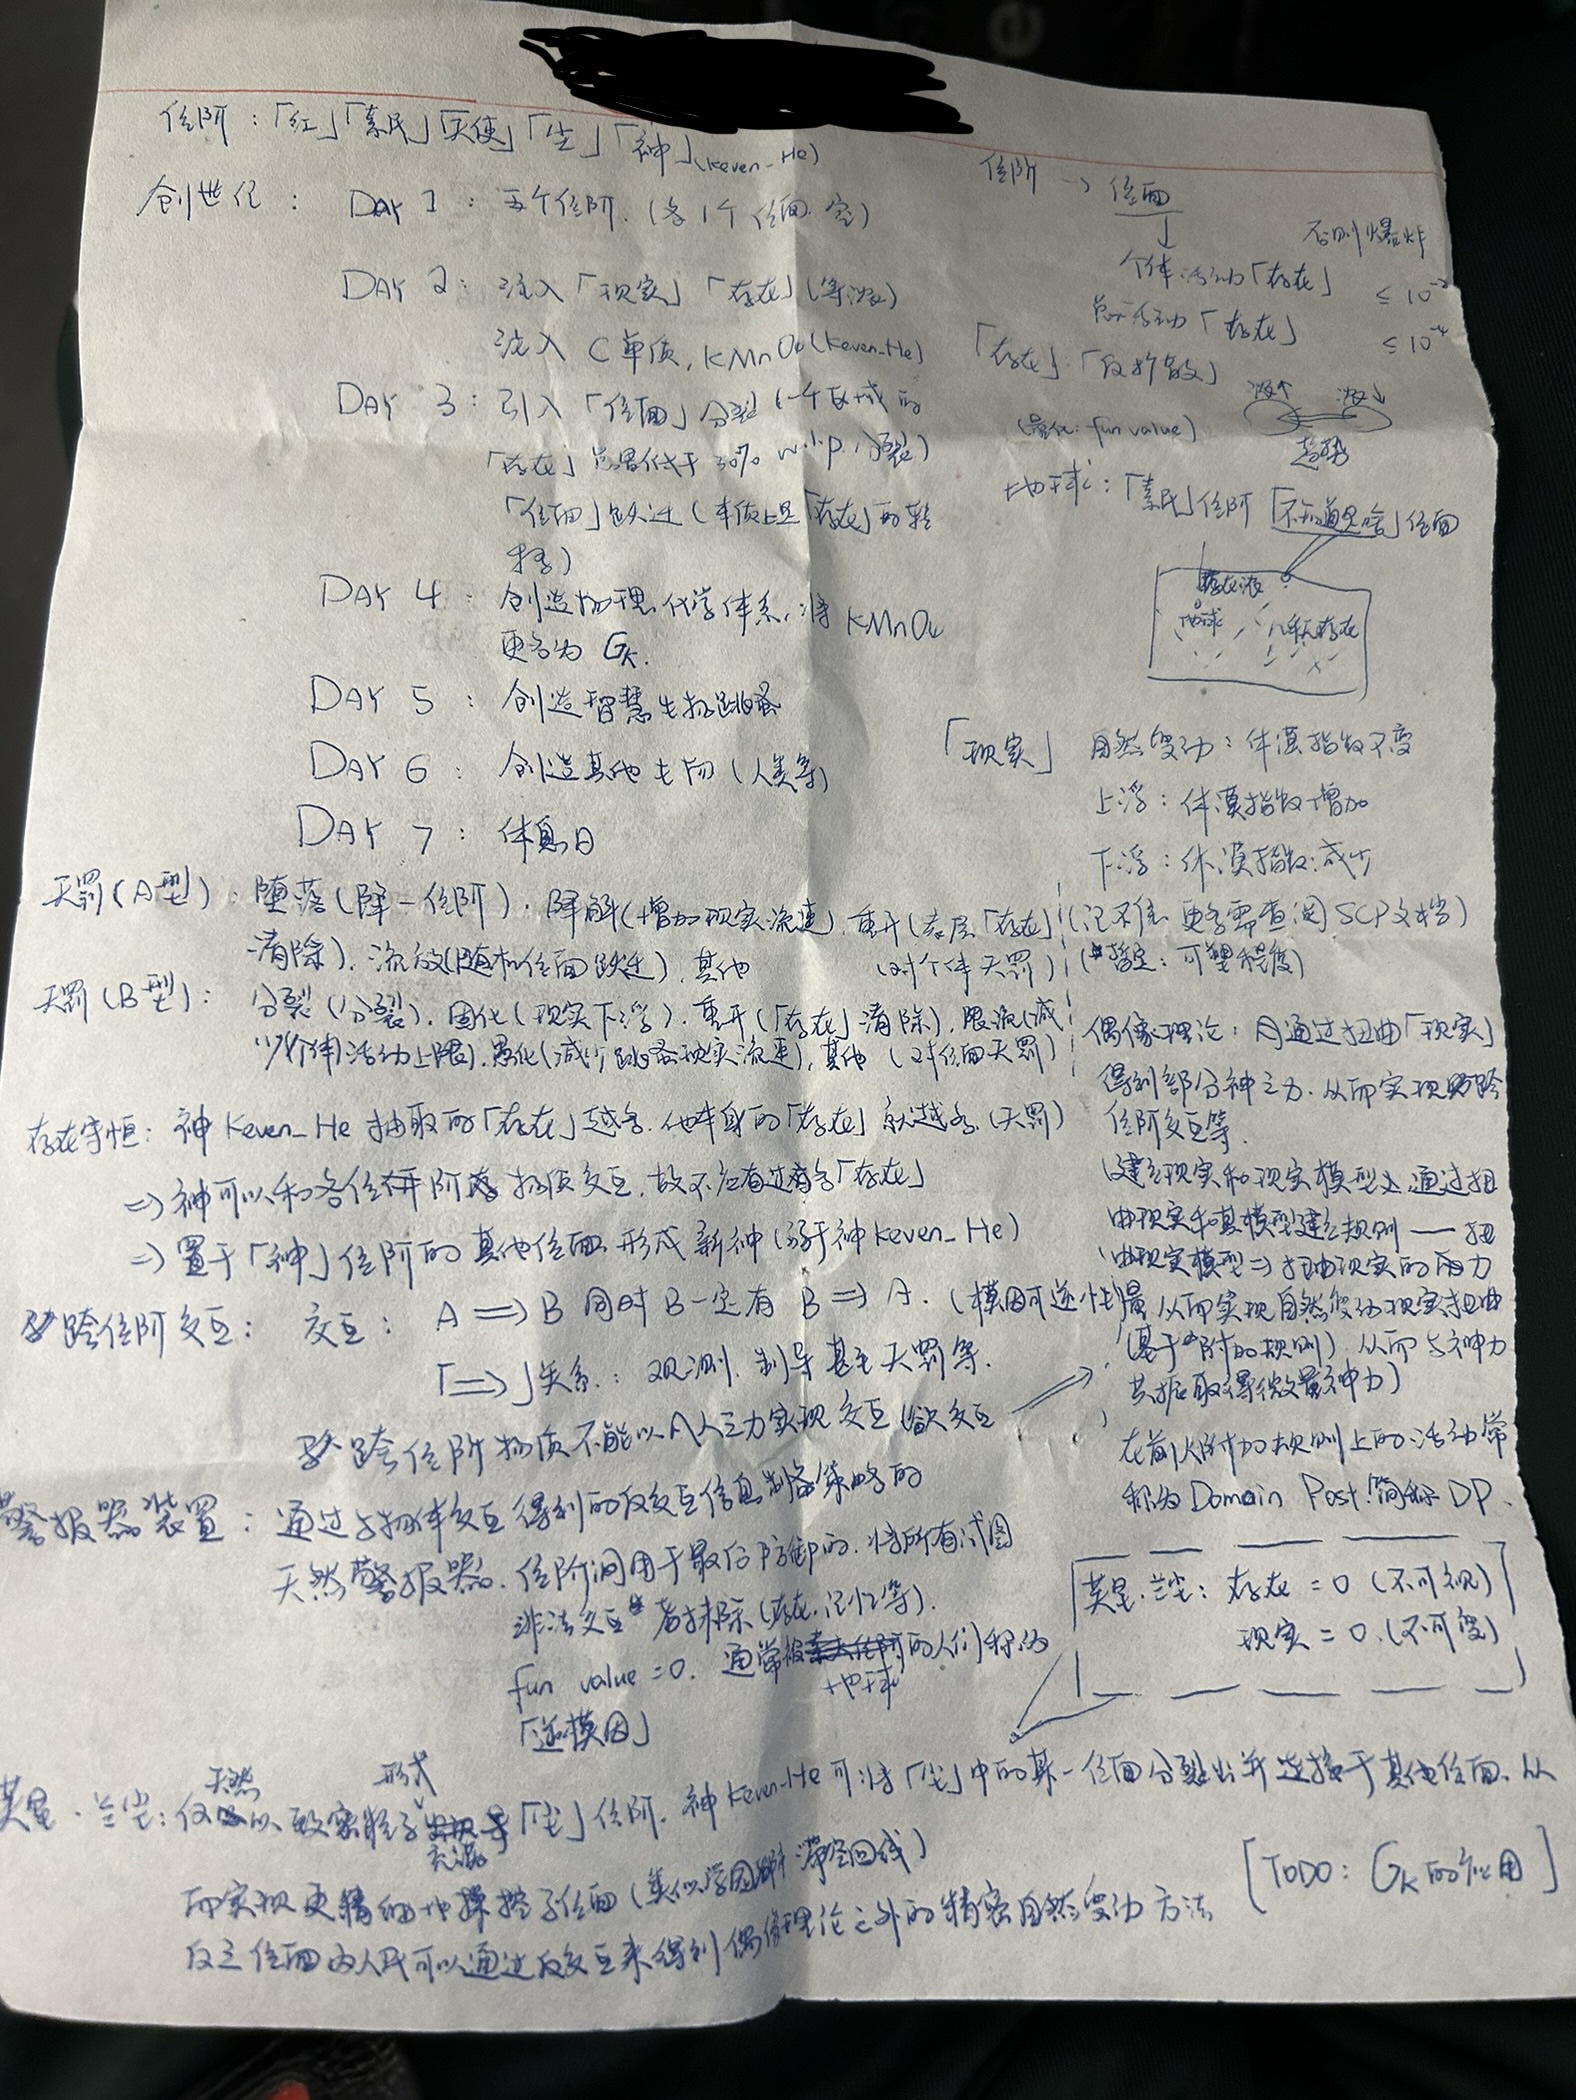 位阶：「红」「素民」「天使」「尘」「神」(Keven_He)
创世纪：DAY 1：五个位阶.（各1个位面.空）
DAY 2：注入「现实」「存在」（等浓）
注入 C单质, KMnO4 (Keven_He)
DAY 3：引入「位面」分裂（一个区域的
「存在」总量低于30% w.h.p. 分裂）
「位面」跃迁（本质上是「存在」的转
移）
DAY 4：创造物理.化学体系,将 KMnO4
更名为 GK.
DAY 5：创造智慧生物跳蚤
DAY 6：创造其他生物（人类等）
DAY 7：休息日
天罚（A型）：堕落（降一位阶）.降解（增加现实流速）.重开（底层「存在」
消除）.流放（随机位面跃迁）.其他（对个体天罚）
天罚（B型）：分裂（分裂）.固化（现实下浮）.重开（「存在」消除）.限流（减
少个体活动上限）.愚化（减少跳蚤现实流速）,其他（对位面天罚）
存在守恒：神 Keven_He 抽取的「存在」越多.他本身的「存在」就越多.（天罚）
⇒ 神可以和各位阶物质交互.故不应有过多「存在」
⇒ 置于「神」位阶的其他位面.形成新神（弱于神 Keven_He）
跨位阶交互：交互：A ⟹ B 同时 B一定有 B ⟹ A.（模因可逆性）
「⟹」关系：观测.制导甚至天罚等.
跨位阶物质不能以人之力实现交互（欲交互
警报器装置：通过与物体交互得到的反交互信息制备策略的
天然警报器.位阶间用于最佳防御的.将所有试图
非法交互者抹除（存在.记忆等）.
fun value = 0. 通常被地球的人们称为
「逆模因」
英星·兰尘：仅天然以致密粒子形式充满「尘」位阶.神 Keven_He 可将「尘」中的某一位面分裂出并连接于其他位面.从
而实现更精细地操控子位面（类似学园都市滞空回线）
反之位面内人民可以通过反交互来得到偶像理论之外的精密自然变动方法
位阶 → 位面
↓
个体活动「存在」 ≤ 10
否则爆炸
总活动「存在」 ≤ 10
「存在」：「反扩散」
（量化：fun value）
浓↑ 浓↓
趋势
地球：「素民」位阶「不知道是啥」位面
存在液
地球
几乎无存在
「现实」 自然变动：休漠指数不变
上浮：休漠指数增加
下浮：休漠指数减少
（记不住.更多需查阅SCP文档）
（暂定：可塑程度）
偶像理论：通过扭曲「现实」
得到部分神之力.从而实现跨
位阶交互等.
（建立现实和现实模型.通过扭
曲现实和其模型建立规则——扭
曲现实模型 ⇒ 扭曲现实的
从而实现自然变动现实扭曲
（基于附的规则）.从而与神力
共振取得微量神力）
在前人附加规则上的活动常
称为 Domain Post.简称 DP.
英星·兰尘：存在 = 0（不可视）
现实 = 0.（不可变）
[TODO: GK的应用]